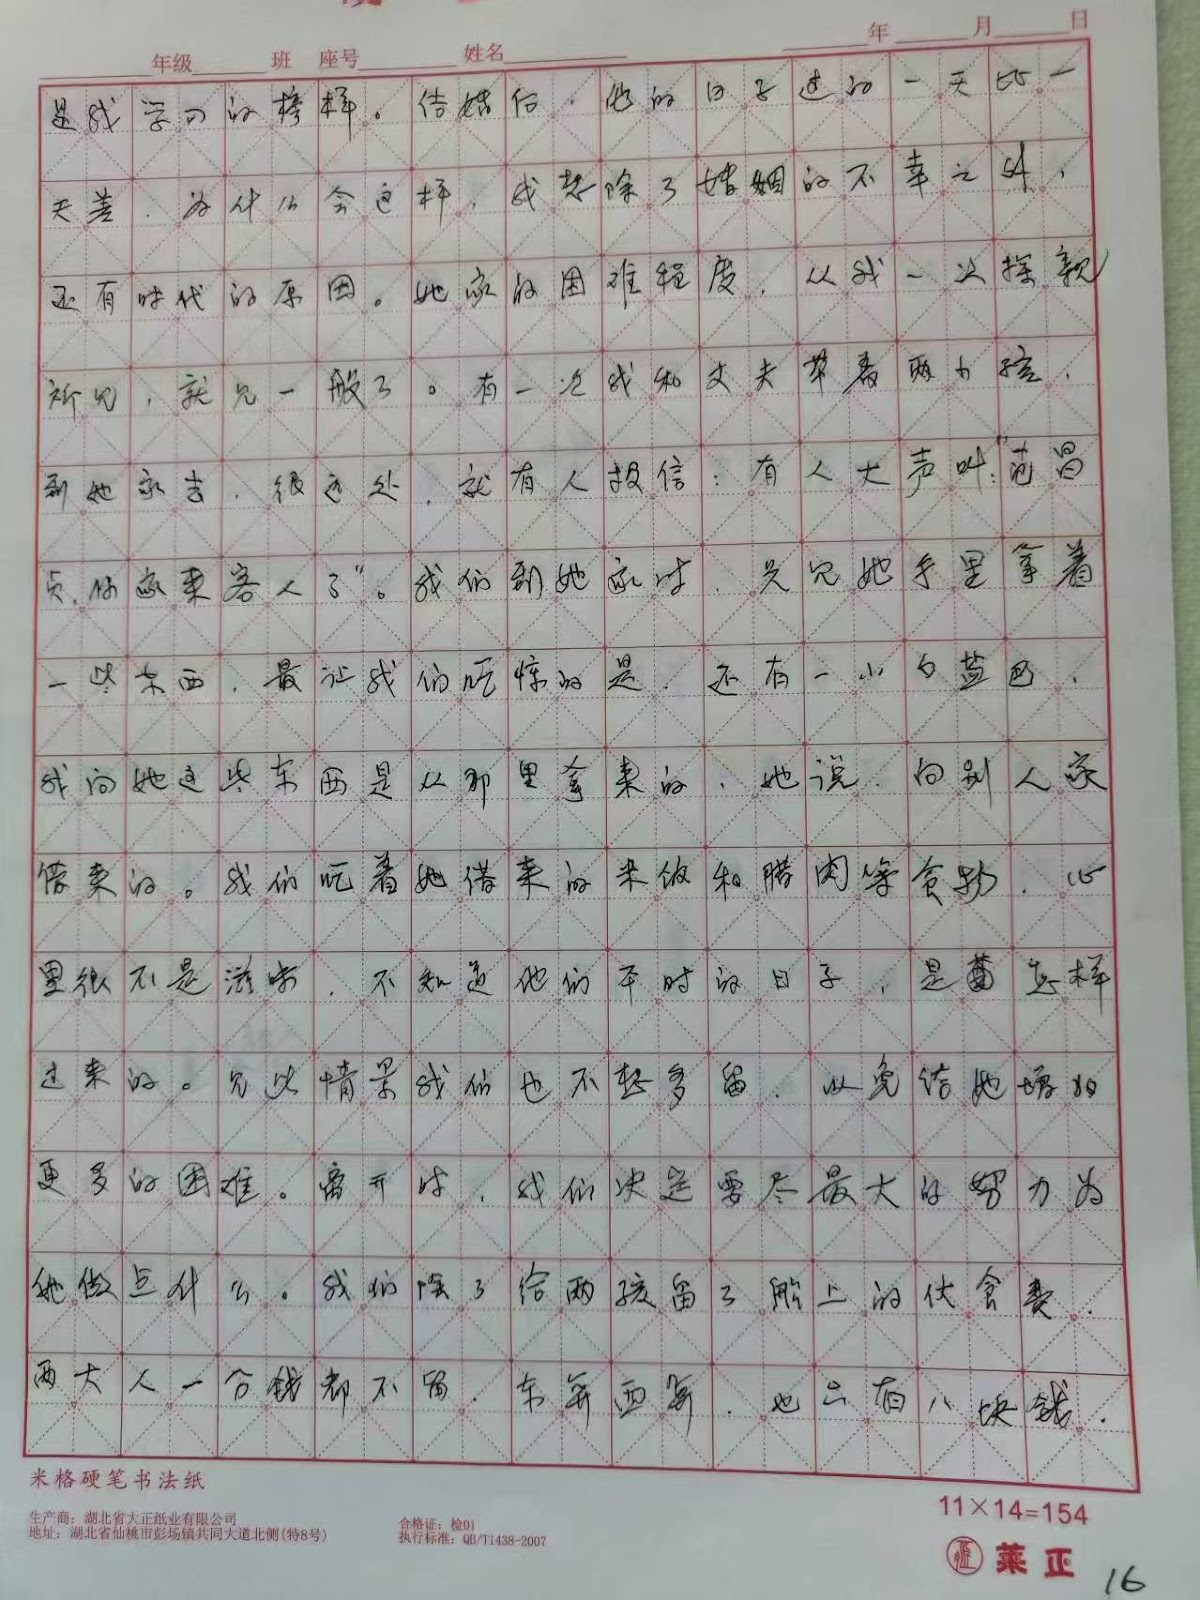 年级 班 座号 姓名 年 月 日
是我学习的榜样。结婚后,他的日子过的一天比一
天差,为什么会这样,我想除了婚姻的不幸之外,
还有时代的原因。她家的困难程度,从我一次探亲
所见,就见一般了。有一次我和丈夫带着两小孩,
到她家去,很远处,就有人报信:有人大声叫:"范昌
贞,你家来客人了"。我们到她家时,只见她手里拿着
一些东西,最让我们吃惊的是,还有一小白蓝色,
我问她这些东西是从那里拿来的,她说,向别人家
借来的。我们吃着她借来的米饭和腊肉等食物,心
里很不是滋味,不知道他们平时的日子,是怎样
过来的。见此情景我们也不想多留,以免给她增加
更多的困难。离开时,我们决定要尽最大的努力为
她做点什么。我们除了给两孩留了船上的伙食费,
两大人一分钱都不留,东弄西弄,也只有八块钱,
米格硬笔书法纸
11×14=154
生产商:湖北省大正纸业有限公司
地址:湖北省仙桃市彭场镇共同大道北侧(特8号)
合格证:检01
执行标准:QB/T1438-2007
莱正
16